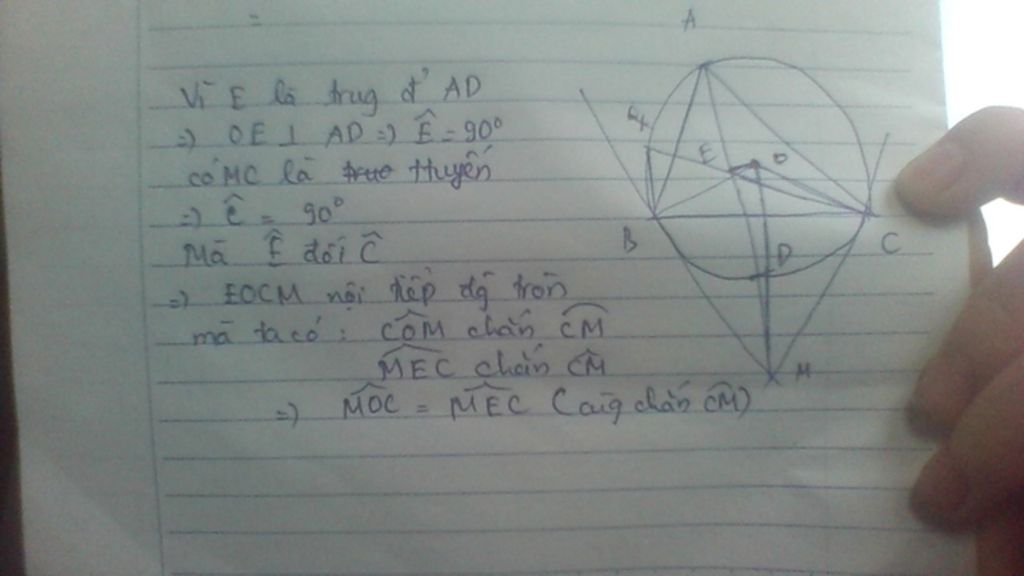 =
A
Vì E là trug đ' AD
=) OE ⊥ AD =) Ê = 90°
có MC là Huyến
=) Ĉ = 90°
Mà Ê đối Ĉ
=) EOCM nội tiếp đg tròn
mà ta có : COM chắn CM
MEC chắn CM
=) MOC = MEC (cùg chắn CM)
E
O
B
C
D
M